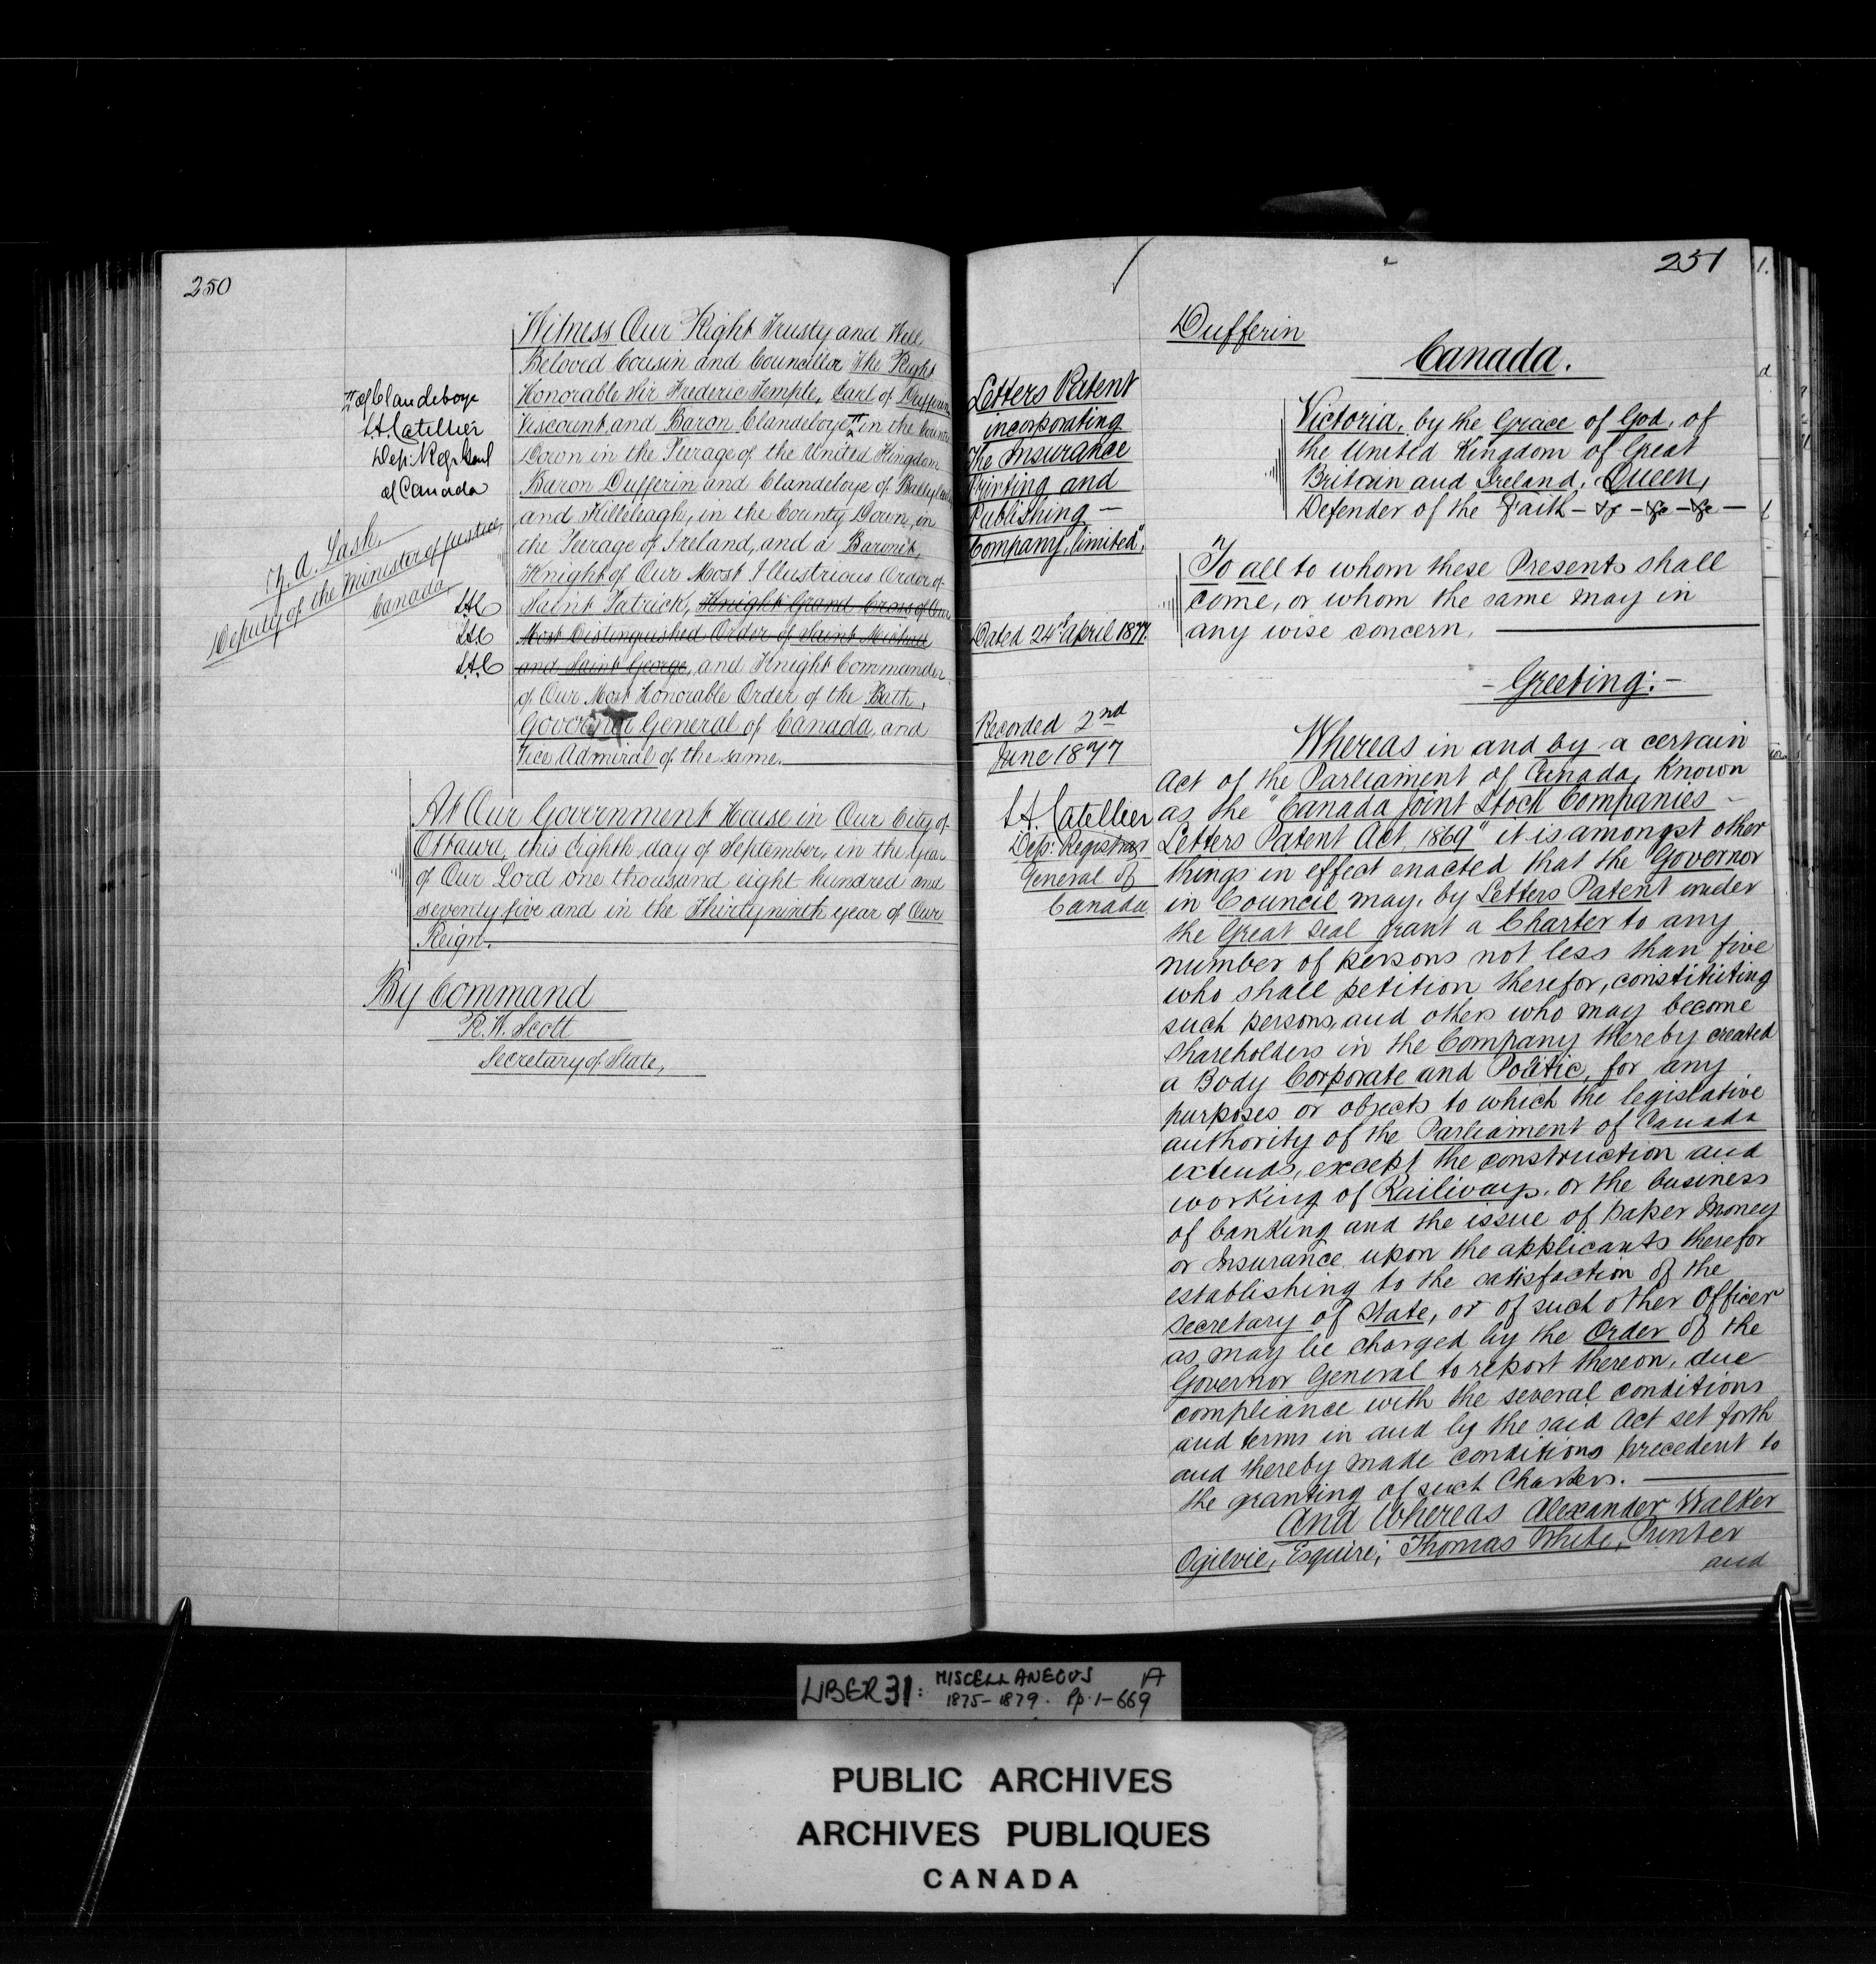 250
Witness Our Right Trusty and Well
Beloved Cousin and Councillor The Right
Honorable Sir Frederic Temple, Earl of Dufferin
Viscount and Baron Clandeboye in the County
Down in the Peerage of the United Kingdom
Baron Dufferin and Clandeboye of
and Killeleagh, in the County Down, in
the Peerage of Ireland, and a Baronet,
Knight of Our Most Illustrious Order of
Saint Patrick, Knight Grand Cross of Our
Most Distinguished Order of Saint Michael
and Saint George, and Knight Commander
of Our Most Honorable Order of the Bath,
Governor General of Canada, and
Vice Admiral of the same.
of Clandeboye
L.A. Catellier
Dep: Reg: Genl
of Canada
Z. A. Lash,
Deputy of the Minister of Justice,
Canada
L.A.C
L.A.C
L.A.C
At Our Government House in Our City of
Ottawa, this Eighth day of September, in the year
of Our Lord one thousand eight hundred and
seventy five and in the Thirtyninth year of Our
Reign.
By Command
R. W. Scott
Secretary of State,
251
Dufferin
Canada.
Letters Patent
incorporating
The Insurance
Printing and
Publishing —
Company, limited".
Dated 24th April 1877.
Recorded 2nd
June 1877
L.A. Catellier
Dep: Registrar
General of
Canada
Victoria, by the Grace of God, of
the United Kingdom of Great
Britain and Ireland, Queen,
Defender of the Faith - &c - &c - &c -
To all to whom these Presents shall
come, or whom the same may in
any wise concern,
- Greeting: -
Whereas in and by a certain
Act of the Parliament of Canada, known
as the "Canada Joint Stock Companies -
Letters Patent Act, 1869" it is amongst other
things in effect enacted that the Governor
in Council may, by Letters Patent under
the Great Seal grant a Charter to any
number of persons not less than five
who shall petition therefor, constituting
such persons, and others who may become
shareholders in the Company thereby created
a Body Corporate and Politic, for any
purposes or objects to which the legislative
authority of the Parliament of Canada
extends, except the construction and
working of Railways, or the business
of banking and the issue of paper money
or Insurance upon the applicants therefor
establishing to the satisfaction of the
Secretary of State, or of such other Officer
as may be charged by the Order of the
Governor General to report thereon, due
compliance with the several conditions
and terms in and by the said Act set forth
and thereby made conditions precedent to
the granting of such Charters.
And Whereas Alexander Walker
Ogilvie, Esquire; Thomas White, Printer
and
LIBER 31: MISCELLANEOUS A
1875-1879. Pp. 1-669
PUBLIC ARCHIVES
ARCHIVES PUBLIQUES
CANADA